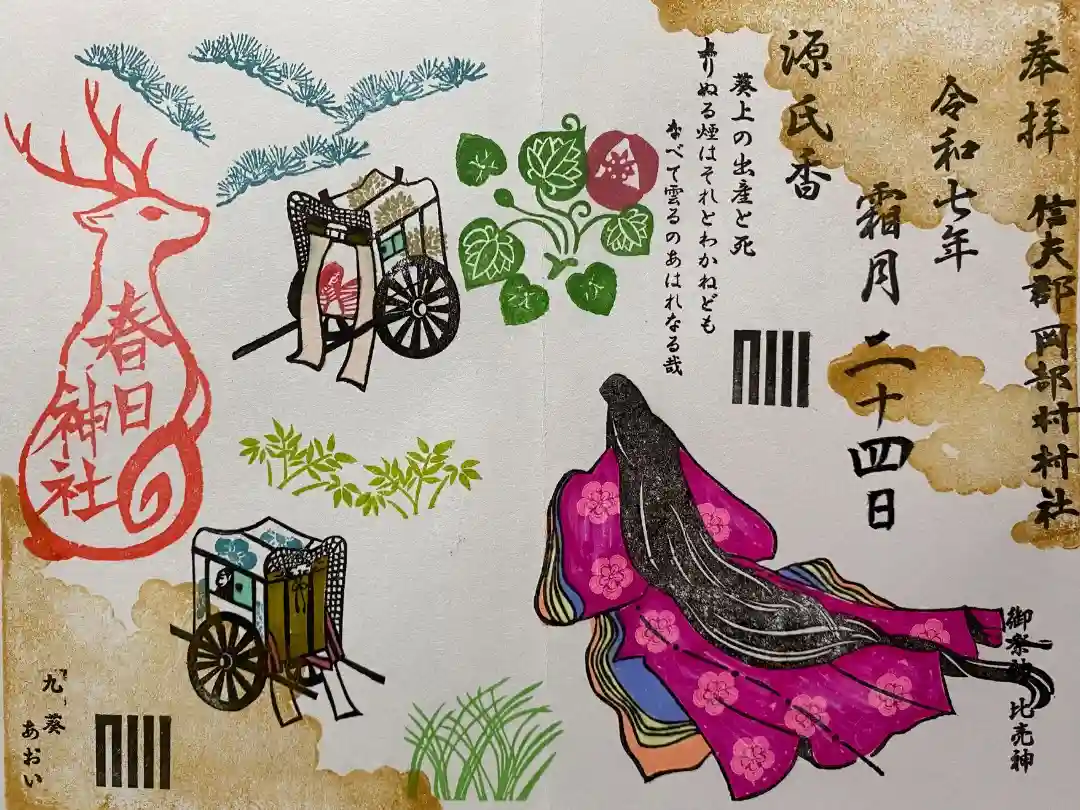 奉拝 信夫郡岡部村村社
令和七年
霜月二十四日
源氏香
葵上の出産と死
のりぬる煙はそれとわかねども
なべて雲ゐのあはれなる哉
御祭神 比売神
春日
神社
九、葵
あおい